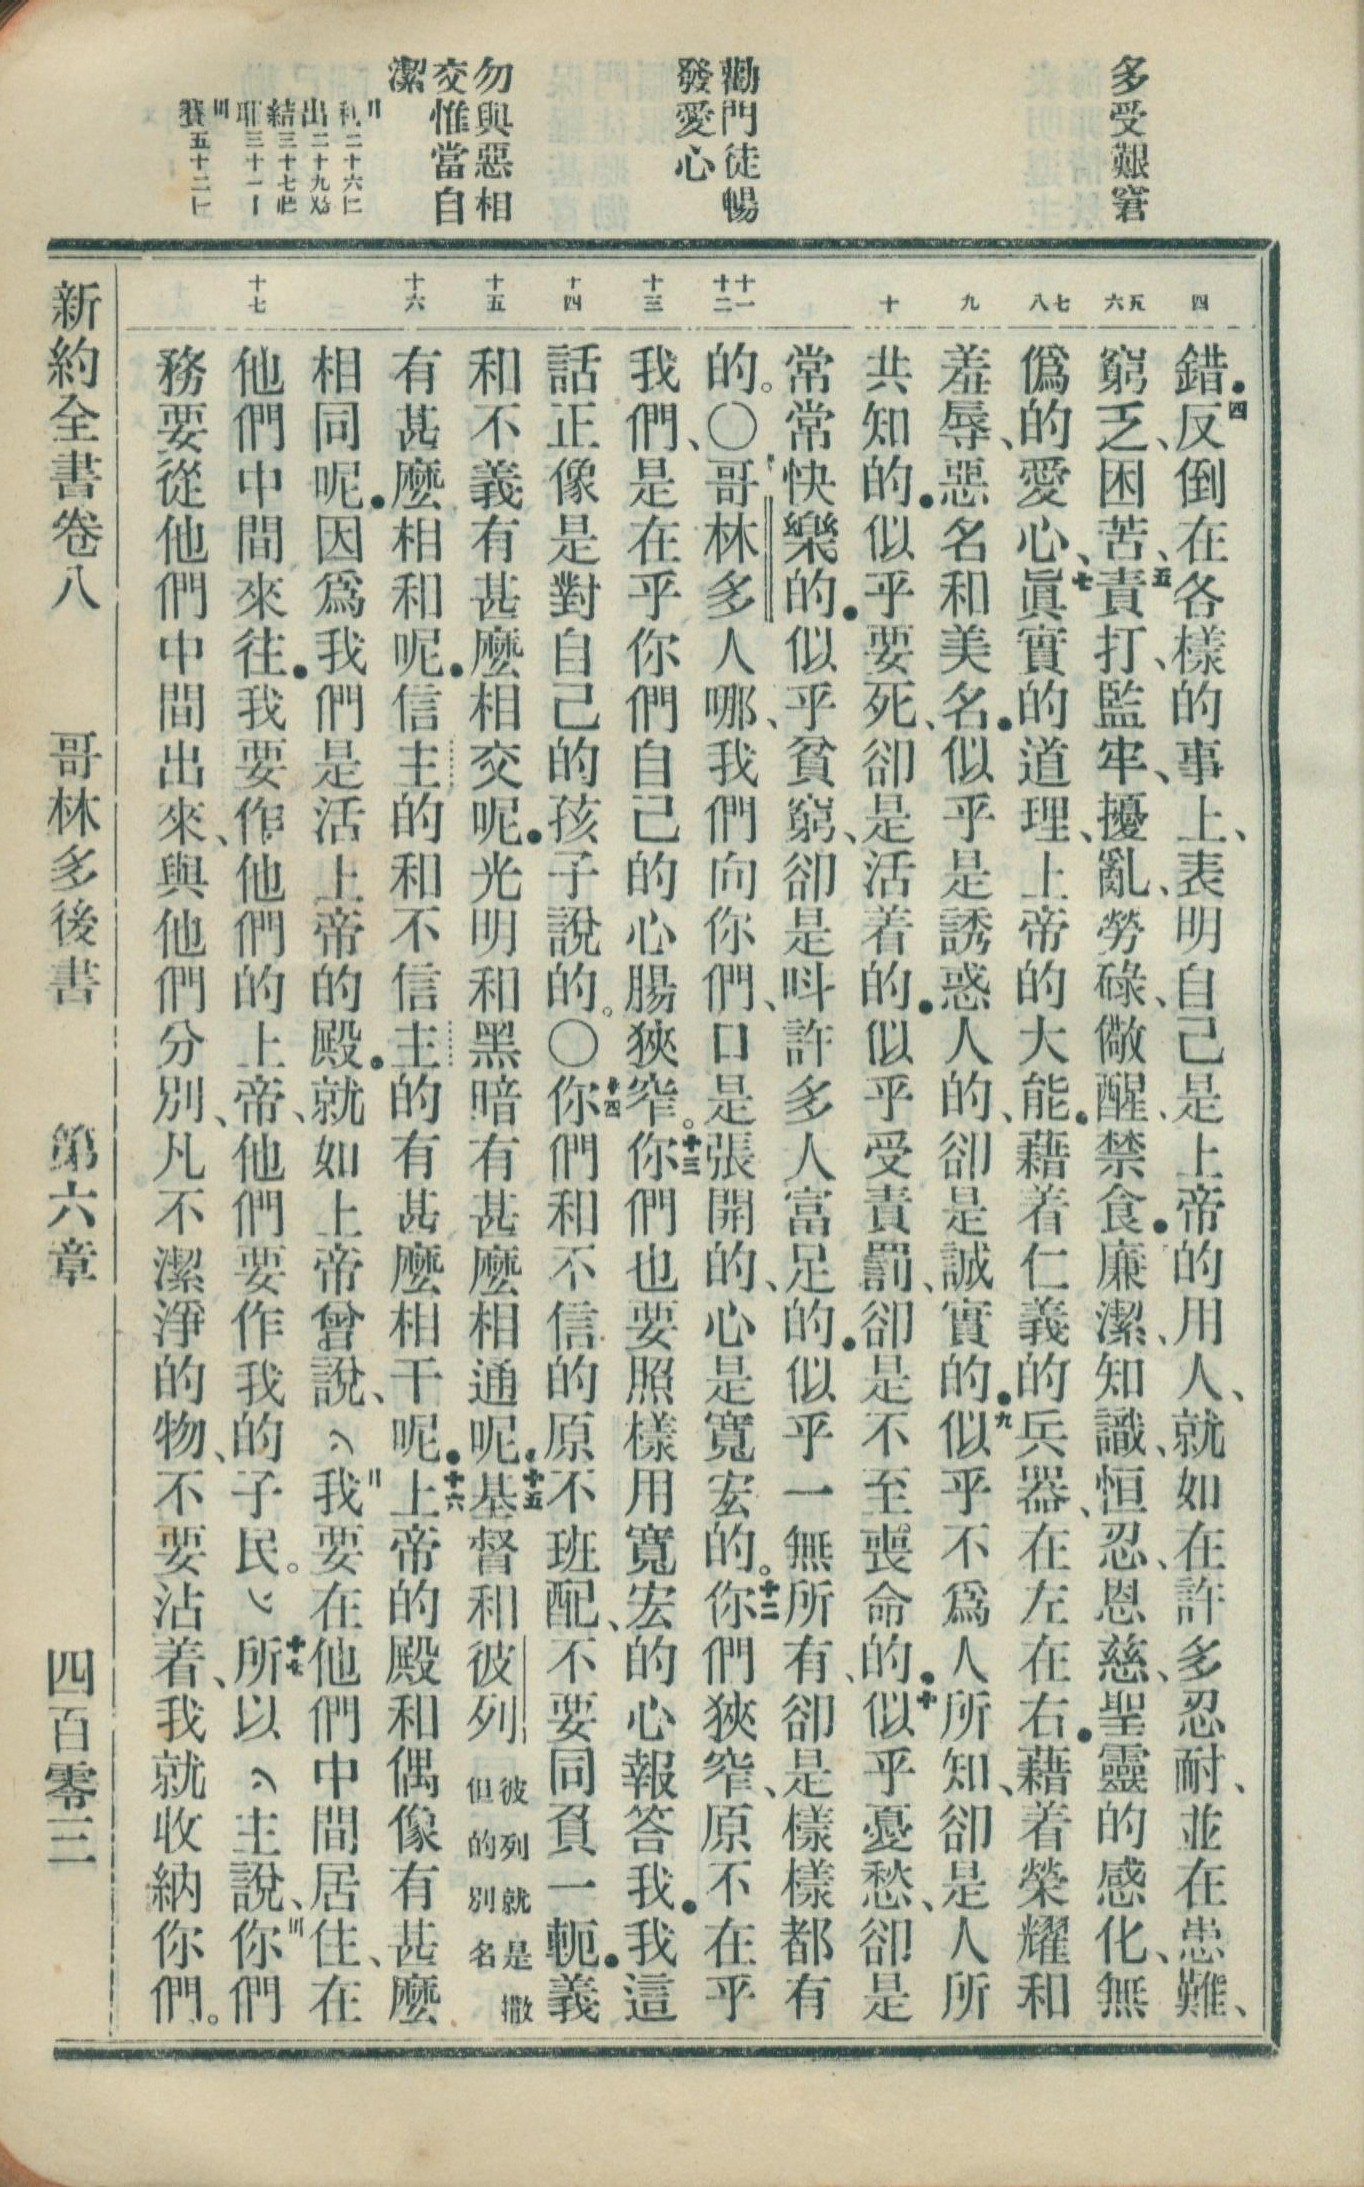 多受艱窘
勸門徒暢
發愛心
勿與惡相
交惟當自
潔
四
五
六
七
八
九
十
十一
十二
十三
十四
十五
十六
十七
錯．四反倒在各樣的事上、表明自己是上帝的用人、就如在許多忍耐、並在患難、
窮乏、困苦、五責打、監牢、擾亂、勞碌、儆醒、禁食．廉潔、知識、恒忍、恩慈、聖靈的感化、無
僞的愛心、七眞實的道理、上帝的大能．藉着仁義的兵器、在左在右．藉着榮耀和
羞辱、惡名和美名．似乎是誘惑人的、卻是誠實的．九似乎不爲人所知、卻是人所
共知的．似乎要死、卻是活着的．似乎受責罰、卻是不至喪命的．十似乎憂愁、卻是
常常快樂的．似乎貧窮、卻是呌許多人富足的．似乎一無所有、卻是樣樣都有
的。〇哥林多人哪、我們向你們、口是張開的、心是寬宏的。十二你們狹窄、原不在乎
我們、是在乎你們自己的心腸狹窄。十三你們也要照樣用寬宏的心報答我．我這
話正像是對自己的孩子說的。〇十四你們和不信的原不班配、不要同負一軛．義
和不義有甚麼相交呢．光明和黑暗有甚麼相通呢．十五基督和彼列彼列就是撒但的別名
有甚麼相和呢．信主的和不信主的有甚麼相干呢．十六上帝的殿和偶像有甚麼
相同呢．因爲我們是活上帝的殿．就如上帝曾說、我要在他們中間居住、在
他們中間來往．我要作他們的上帝、他們要作我的子民。十七所以主說、你們
務要從他們中間出來、與他們分別、凡不潔淨的物、不要沾着、我就收納你們。
新約全書卷八　哥林多後書　第六章　四百零三